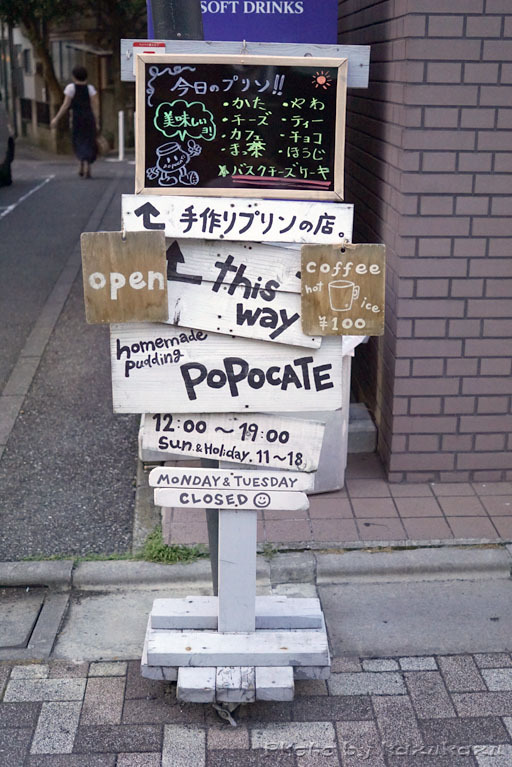 SOFT DRINKS
今日のプリン!!
美味しいョ!
・かた
・チーズ
・カフェ
・まっ茶
・やわ
・ティー
・チョコ
・ほうじ
★バスクチーズケーキ
手作りプリンの店。
open
this
way
coffee
hot
ice
¥100
homemade
pudding
POPOCATE
12:00〜19:00
Sun.&Holiday.11〜18
MONDAY&TUESDAY
CLOSED
Photo by Kazukazu